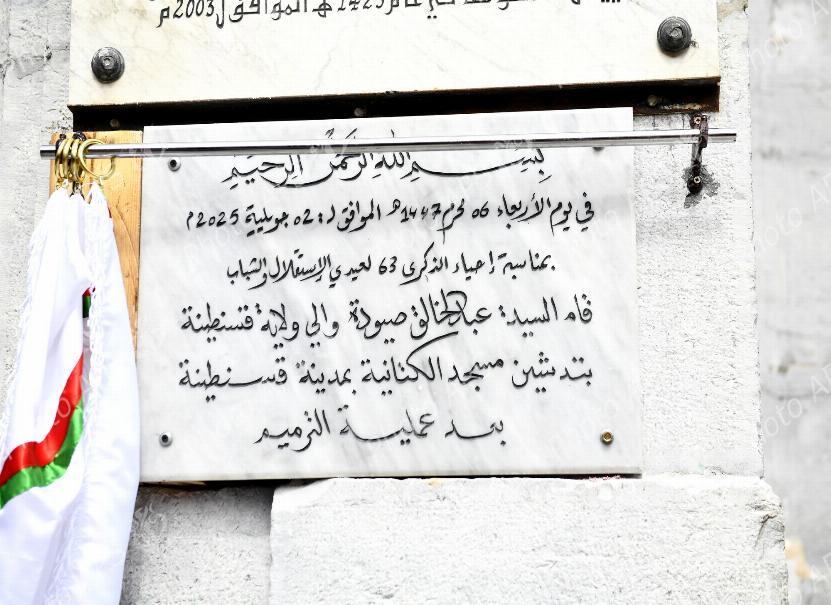 في عام 1423 هـ الموافق ل 2003م
بِسْمِ اللهِ الرَّحْمَنِ الرَّحِيمِ
في يوم الأربعاء 06 محرم 1447هـ الموافق لـ: 02 جويلية 2025م
بمناسبة إحياء الذكرى 63 لعيدي الإستقلال والشباب
قام السيد: عبد الخالق صيودة والي ولاية قسنطينة
بتدشين مسجد الكتانية بمدينة قسنطينة
بعد عملية الترميم